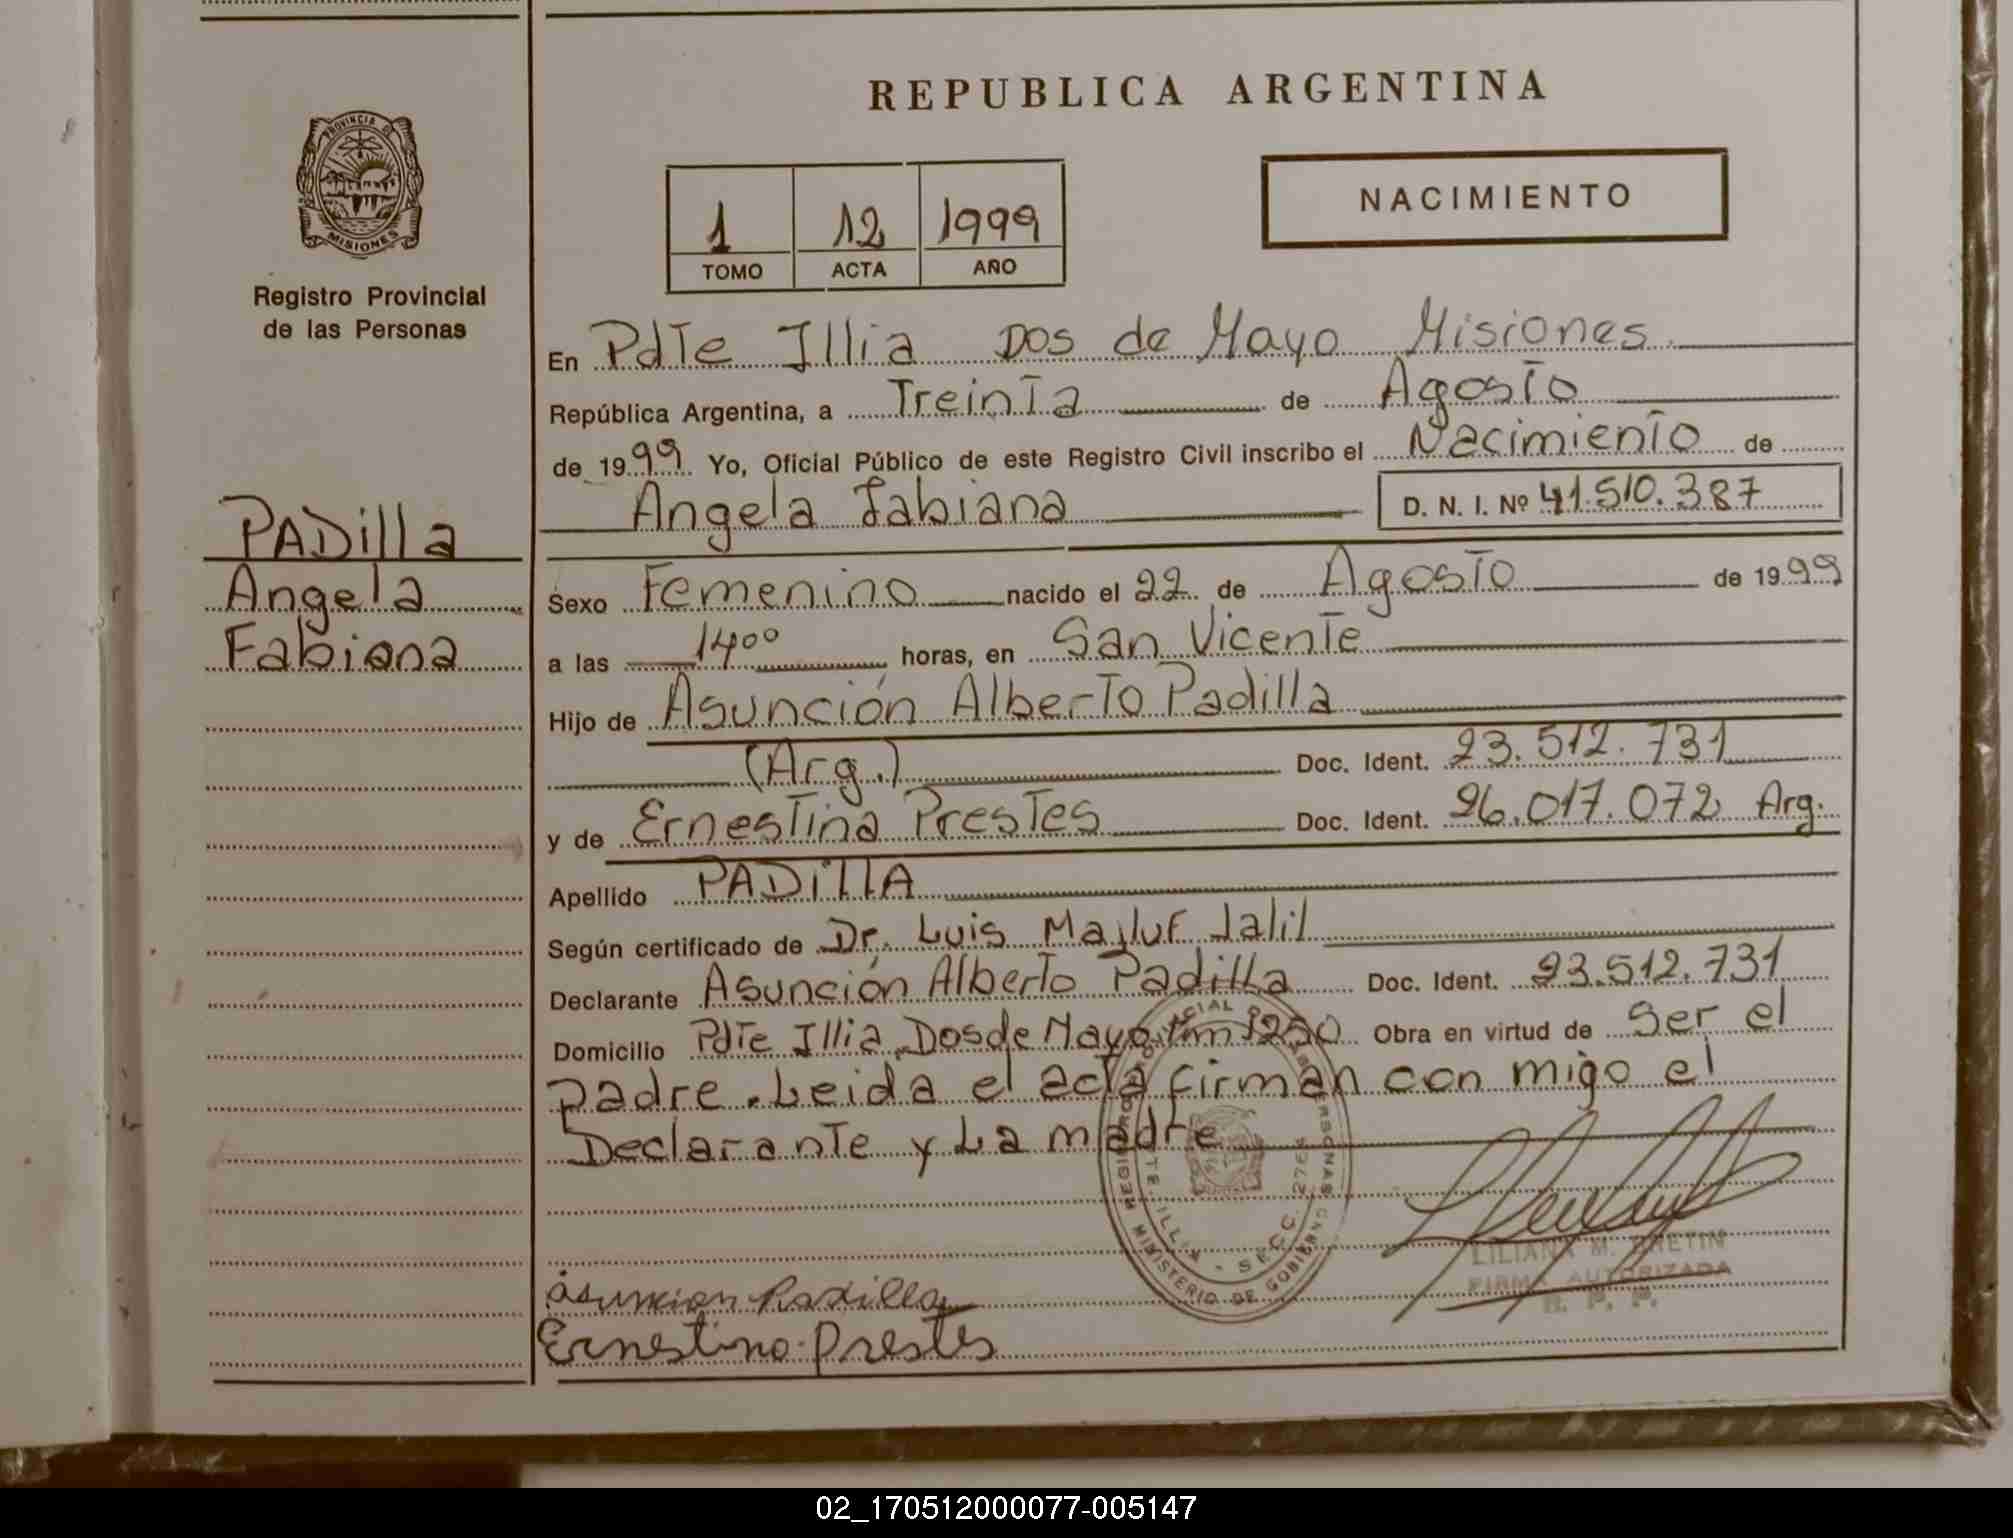 REPUBLICA ARGENTINA
PROVINCIA DE
MISIONES
Registro Provincial
de las Personas
1 12 1999
TOMO ACTA AÑO
NACIMIENTO
PADilla
Angela
Fabiana
En Pdte Illia Dos de Mayo Misiones
República Argentina, a Treinta de Agosto
de 1999 Yo, Oficial Público de este Registro Civil inscribo el Nacimiento de
Angela Fabiana D. N. I. Nº 41.510.387
Sexo Femenino nacido el 22 de Agosto de 1999
a las 14⁰⁰ horas, en San Vicente
Hijo de Asunción Alberto Padilla
(Arg.) Doc. Ident. 23.512.731
y de Ernestina Prestes Doc. Ident. 26.017.072 Arg.
Apellido PADillA
Según certificado de Dr. Luis Majluf Jalil
Declarante Asunción Alberto Padilla Doc. Ident. 23.512.731
Domicilio Pdte Illia Dos de Mayo Km 1250 Obra en virtud de Ser el
padre. Leida el acta firman con migo el
Declarante y La madre
MINISTERIO DE GOBIERNO
SECC. 276
LILIANA M. BRETIN
FIRMA AUTORIZADA
R. P. P.
Asunción Padilla
Ernestina Prestes
02_170512000077-005147